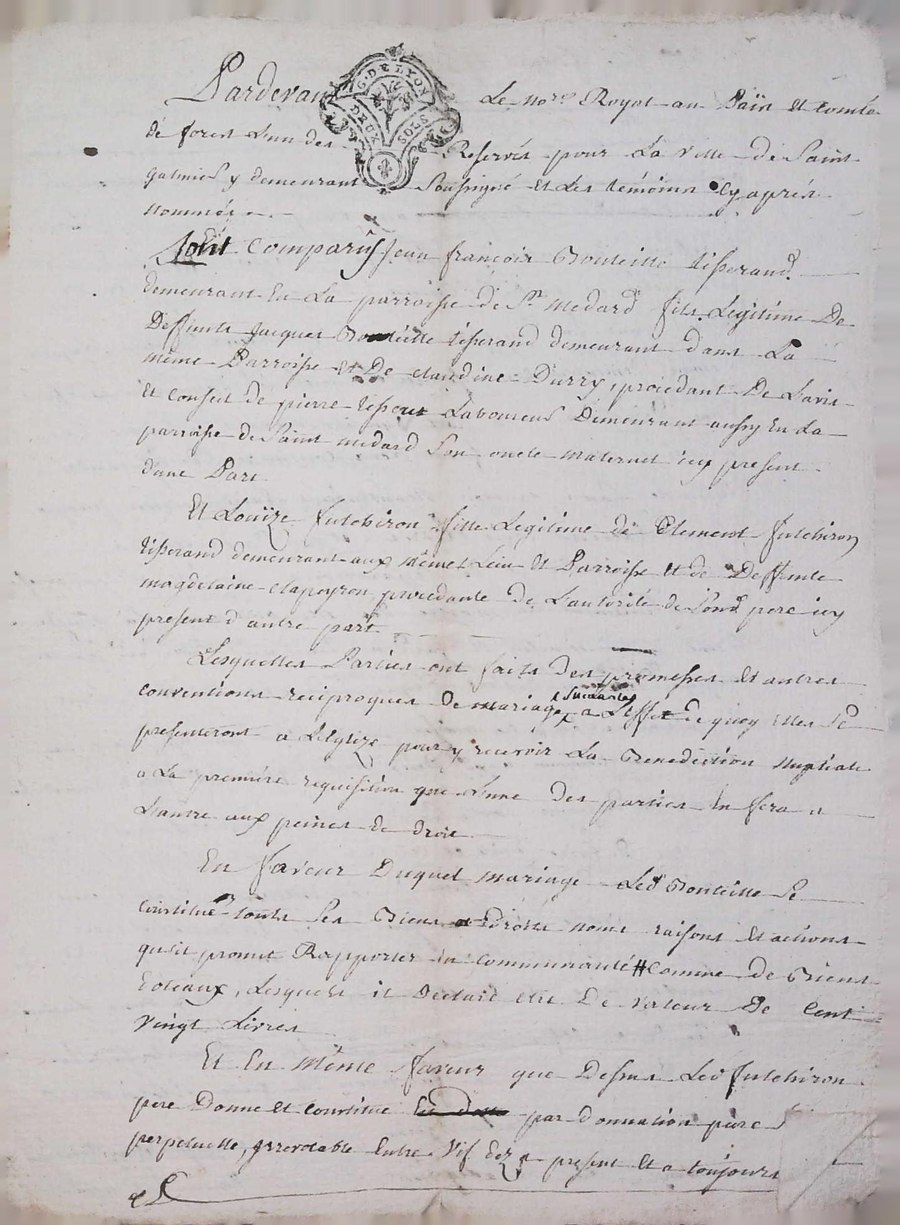 Pardevan Le No.re Royal au Païs et Comté
G. DE LYON
DEUX SOLS
de forest L'un des Reservés pour La Ville de Saint
galmier y demeurant Soussigné et Les témoins cy après
Nommés
Sont Comparûs Jean françois Bouteille tisserand
demeurant En La parroisse de St. Medard fils Legitime De
Deffunts Jacques Bouteille tisserand demeurant dans La
même Parroisse et De Claudine Durry, procedant De L'avis
Et Conseil de pierre Laboureur Demeurant aussy En La
parroisse de Saint Medard Son oncle maternel icy present
d'une Part
Et Louïze futchiron fille Legitime de Clement futchiron
tisserand demeurant aux mêmes Lieu Et Parroisse et de Deffunte
magdelaine Clapeyron procedante de L'autorité de Sond. pere icy
present d'autre part
Lesquelles Parties ont faits des promesses et autres
conventions reciproques De mariage a L'effet de quoy Elles Se
presenteront a L'Eglize pour y recevoir La Benediction Nuptiale
a La premiére requisition que L'une Des parties En fera a
L'autre aux peines de droit
En faveur Duquel mariage Led. Bouteille Se
Constitue touts Ses Biens Droits noms raisons Et actions
qu'il promet Rapporter En Communauté # Comme de Biens
totaux, Lesquels il Declare etre De valeur De Cent
vingt Livres
Et En Même faveur que Dessus Led. futchiron
pere Donne et Constitue par donnation pure
perpetuelle, Irrevocable Entre Vif dez a present Et a toujours